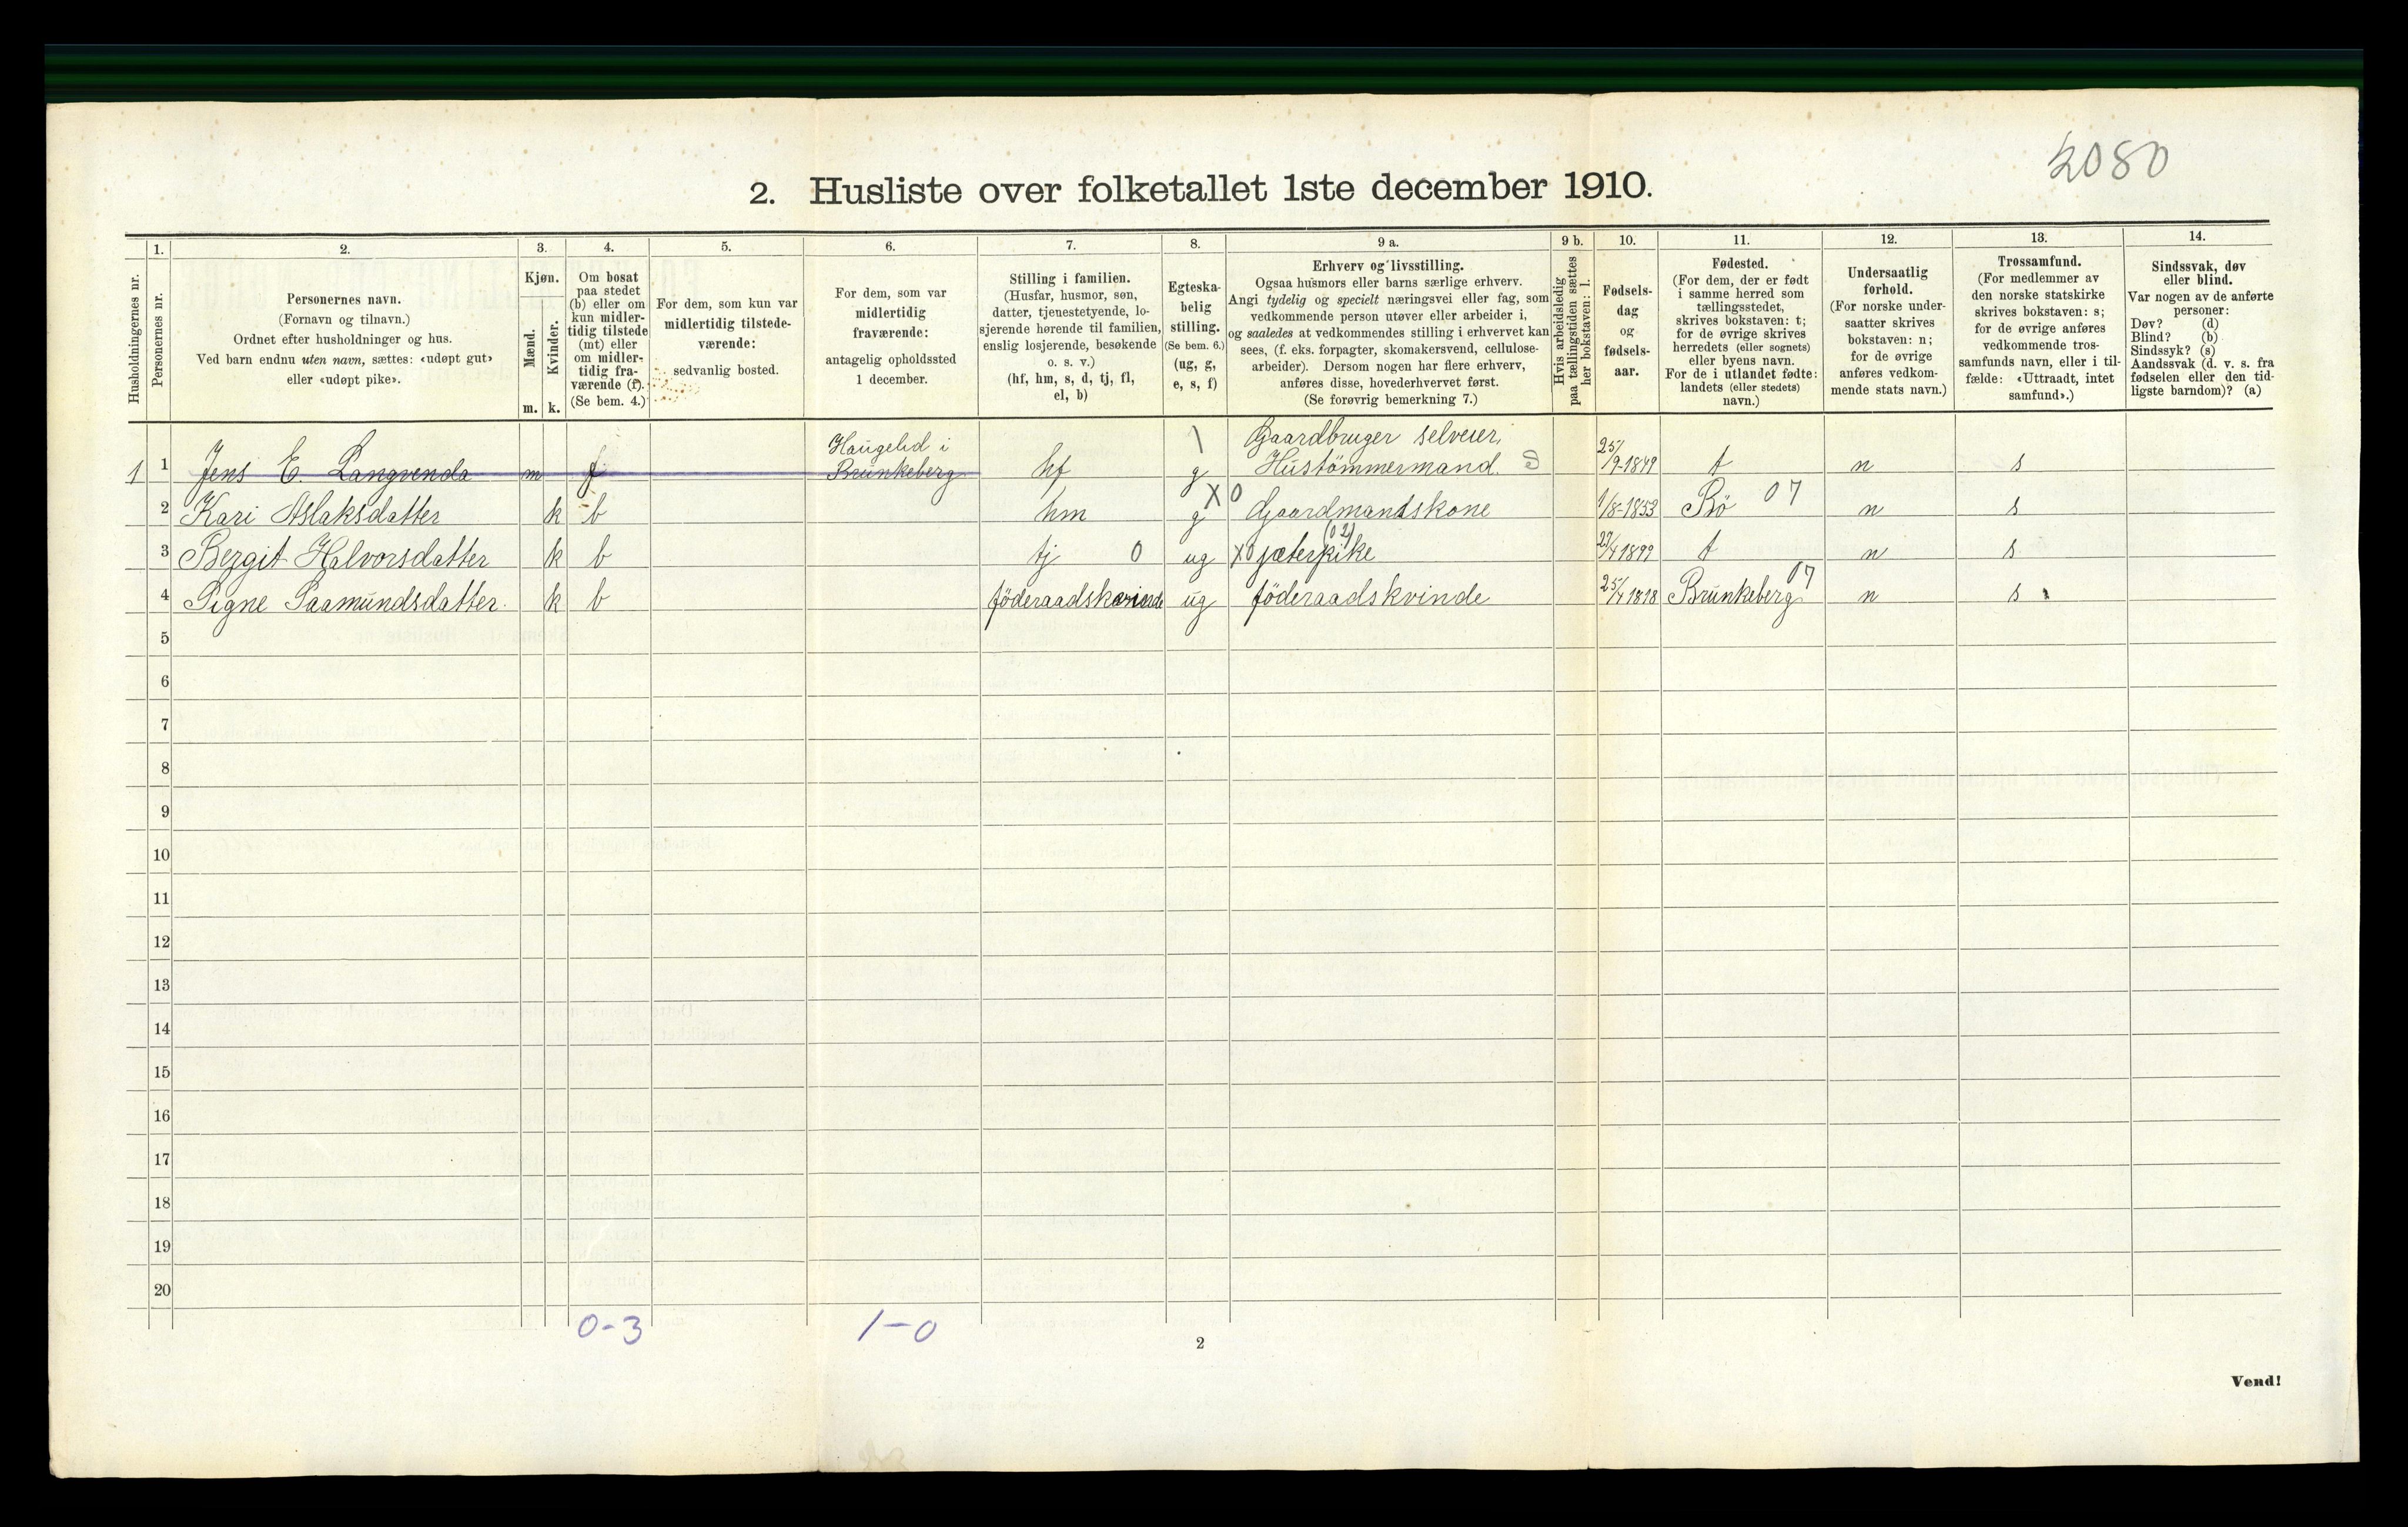 2080
2. Husliste over folketallet 1ste december 1910.
Husholdningernes nr.
1.
Personernes nr.
2.
Personernes navn.
(Fornavn og tilnavn.)
Ordnet efter husholdninger og hus.
Ved barn endnu uten navn, sættes: «udøpt gut»
eller «udøpt pike».
3.
Kjøn.
Mænd.
Kvinder.
m. k.
4.
Om bosat
paa stedet
(b) eller om
kun midler-
tidig tilstede
(mt) eller
om midler-
tidig fra-
værende (f).
(Se bem. 4.)
5.
For dem, som kun var
midlertidig tilstede-
værende:
sedvanlig bosted.
6.
For dem, som var
midlertidig
fraværende:
antagelig opholdssted
1 december.
7.
Stilling i familien.
(Husfar, husmor, søn,
datter, tjenestetyende, lo-
sjerende hørende til familien,
enslig losjerende, besøkende
o. s. v.)
(hf, hm, s, d, tj, fl,
el, b)
8.
Egteska-
belig
stilling.
(Se bem. 6.)
(ug, g,
e, s, f)
9 a.
Erhverv og livsstilling.
Ogsaa husmors eller barns særlige erhverv.
Angi tydelig og specielt næringsvei eller fag, som
vedkommende person utøver eller arbeider i,
og saaledes at vedkommendes stilling i erhvervet kan
sees, (f. eks. forpagter, skomakersvend, cellulose-
arbeider). Dersom nogen har flere erhverv,
anføres disse, hovederhvervet først.
(Se forøvrig bemerkning 7.)
9 b.
Hvis arbeidsledig
paa tællingstiden sættes
her bokstaven: l.
10.
Fødsels-
dag
og
fødsels-
aar.
11.
Fødested.
(For dem, der er født
i samme herred som
tællingsstedet,
skrives bokstaven: t;
for de øvrige skrives
herredets (eller sognets)
eller byens navn.
For de i utlandet fødte:
landets (eller stedets)
navn.)
12.
Undersaatlig
forhold.
(For norske under-
saatter skrives
bokstaven: n;
for de øvrige
anføres vedkom-
mende stats navn.)
13.
Trossamfund.
(For medlemmer av
den norske statskirke
skrives bokstaven: s;
for de øvrige anføres
vedkommende tros-
samfunds navn, eller i til-
fælde: «Uttraadt, intet
samfund».)
14.
Sindssvak, døv
eller blind.
Var nogen av de anførte
personer:
Døv? (d)
Blind? (b)
Sindssyk? (s)
Aandssvak (d. v. s. fra
fødselen eller den tid-
ligste barndom)? (a)
Haugelid i Gaardbruger selveier,
1 1 Jens E. Langvenda m f Brunkeberg hf g Hustömmermand. 25/9-1849 t n s
2 Kari Aslaksdatter k b hm g X 0 Gaardmandskone 1/8-1853 Bö 07 n s
3 Bergit Halvorsdatter k b tj 0 ug X 0 jæterpike (02) 1899 t n s
4 Signe Saamundsdatter. k b föderaadskvinde ug föderaadskvinde 25/4 1818 Brunkeberg 07 n s
5
6
7
8
9
10
11
12
13
14
15
16
17
18
19
20
0-3 1-0
2
Vend!